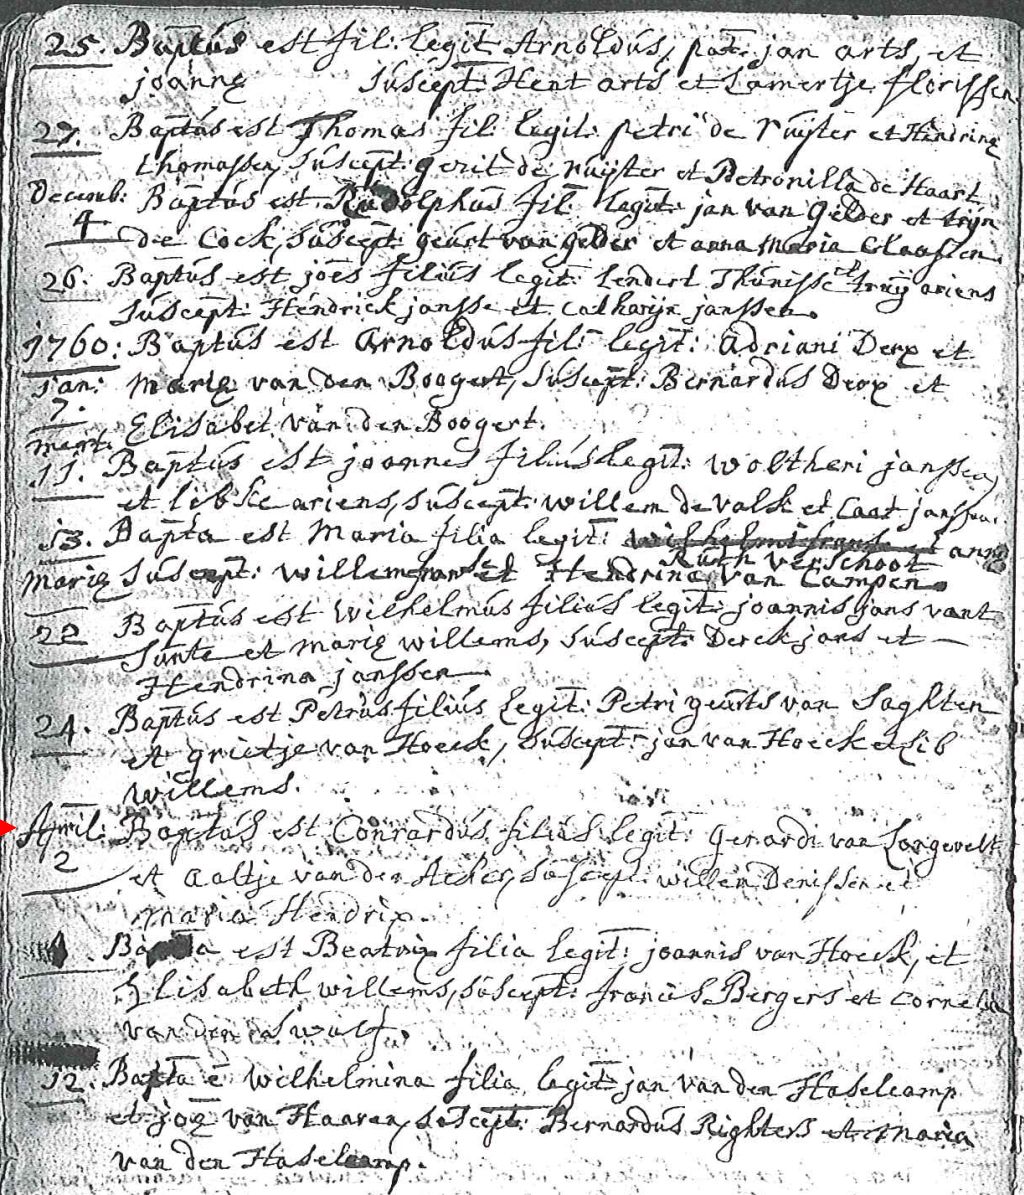 25. Baptus est fil: legit Arnoldus, pat: jan arts, et
joannę suscept: Hent arts et Lamertje florissen
27. Baptus est Thomas fil: legit: petri de ruijter et Hendrinę
thomassen, suscept: gerit de ruijter et Petronilla de Haart
Decemb: Baptus est Rudolphus fil legit: jan van gelder et trijn
4 de Cock, suscept: geurt van gelder et anna maria Claassen.
26. Baptus est joēs filius legit: Lendert Thunisse et truij ariens
suscept: Hendrick jansse et catharijn janssen.
1760: Baptus est Arnoldus fil: legit: adriani Derx et
jan: marię van den Boogert, suscept: Bernardus Derx et
7. Elisabet van den Boogert.
mert.
11. Baptus est joannes filius legit: woltheri janssen
et libste ariens, suscept: willem de valk et Caat janssen.
13. Bapta est Maria filia legit: wilhelmi frans et anna
Ruth verschoot
marię suscept: willem frans et Hendrina van Campen.
22 Baptus est wilhelmus filius legit: joannis jans vant
sante et marię willems, suscept: Derck jans et
Hendrina janssen
24. Baptus est Petrus filius legit: Petri geurts van Saghten
et grietje van Hoeck, suscept: jan van Hoeck et lib
willems.
April: Baptus est Conrardus filius legit: gerardi van Langevelt
2 et aaltje van den Acker, suscept: willem Denissen et
maria Hendrix.
Bapta est Beatrix filia legit: joannis van Hoeck, et
Elisabeth willems, suscept: francis Bergers et Cornelia
van den swalf.
12. Bapta ē wilhelmina filia legit: jan van den Haselcamp
et joę van Haaren, suscept: Bernardus Righters et maria
van den Haselcamp.